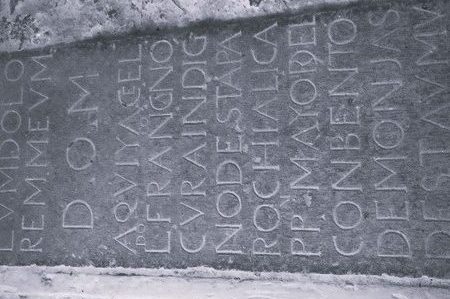 REMMEVM
D O M
AQVIYACEL
FRANCNO
CVRAINDIG
NODESTAPA
ROCHIALICA
PP.MAYORDE
CONBENTO
DEMONJAS